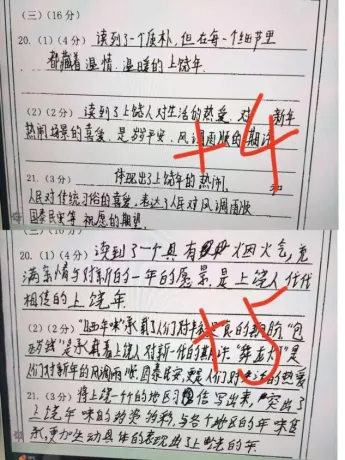 (三)(16分)
20.(1)(4分) 读到了一个质朴,但在每一个细节里
都藏着温情、温暖的上饶年.
(2)(2分) 读到了上饶人对生活的热爱,对 新年
热闹场景的喜爱,是岁岁平安、风调雨顺的期许
+4
21.(3分) 体现出了上饶年的热闹,
人民对传统习俗的喜爱,表达了人民对风调雨顺
国泰民安等祝愿的期望
(三)(16分)
20.(1)(4分) 读到了一个具有 烟火气,充
满亲情与对新的一年的愿景,是上饶人代代
相传的上饶年
+5
(2)(2分) 年味"承载了人们对 的期盼"包
是承载着上饶人对新一年的期许."舞龙灯"是
人们对新年的风调雨顺、国泰民安,更是人们对 的热爱
21.(3分) 将上 的地区习俗写出来,突出了
上饶年味的 ,与各个地区的年味
,更加生动具体的表现出了上饶的年.